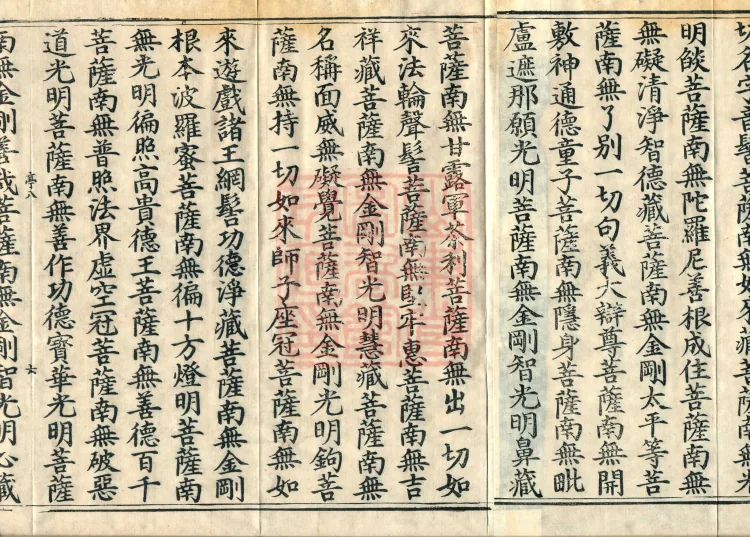 明燄菩薩南無陀羅尼善根成住菩薩南無
無礙清淨智德藏菩薩南無金剛太平等菩
薩南無了別一切句義大辯尊菩薩南無開
敷神通德童子菩薩南無隱身菩薩南無毗
盧遮那願光明菩薩南無金剛智光明鼻藏
菩薩南無甘露軍荼利菩薩南無出一切如
來法輪聲髻菩薩南無堅牢惠菩薩南無吉
祥藏菩薩南無金剛智光明慧藏菩薩南無
名稱面威無礙覺菩薩南無金剛光明鉤菩
薩南無持一切如來師子座冠菩薩南無如
來遊戲諸王網髻功德淨藏菩薩南無金剛
根本波羅蜜菩薩南無徧十方燈明菩薩南
無光明徧照高貴德王菩薩南無善德百千
菩薩南無普照法界虛空冠菩薩南無破惡
道光明菩薩南無善作功德寶華光明菩薩
亭八 六
南無金剛善哉菩薩南無金剛智光明心藏